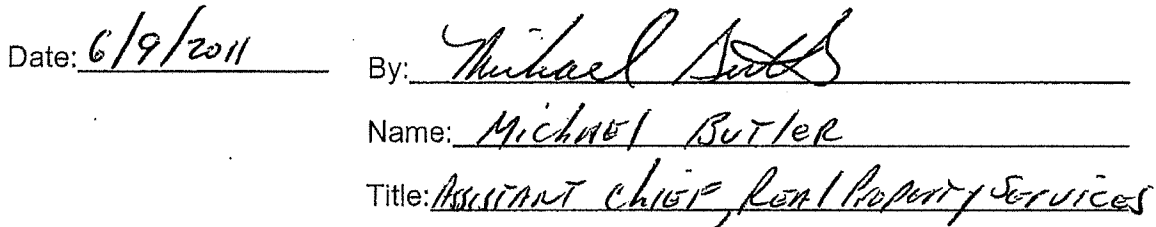 Date: 6/9/2011
By: Michael Butler
Name: Michael Butler
Title: Assistant Chief, Real Property Services